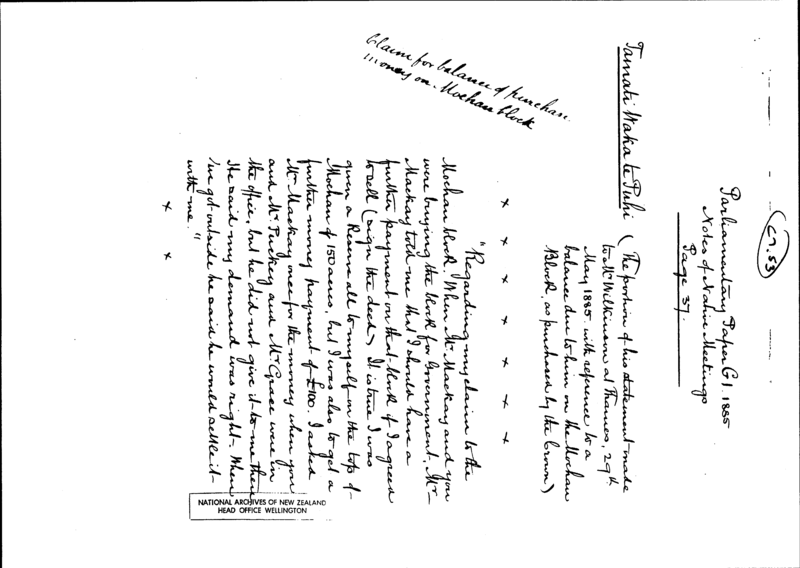 C7.53
Parliamentary Paper G1. 1885
Notes of Native Meetings
Page 37.
Tamati Waka te Puhi (The portion of his statement made
to Mr Wilkinson at Thames, 29th
May 1885 with reference to a
balance due to him on the Moehau
Block, as purchased by the Crown)
Claim for balance of purchase
money on Moehau Block
x x x x x x x
"Regarding my claim to the
Moehau block. When Mr Mackay and you
were buying the block for Government, Mr
Mackay told me that I should have a
further payment on that block if I agreed
to sell (sign the deed). It is true I was
given a Reserve all to myself on the top of
Moehau of 150 acres, but I was also to get a
further money payment of £100. I asked
Mr Mackay once for the money when you
and Mr Puckey and Mr Grace were in
the office, but he did not give it to me there
He said my demand was right. When
we got outside he said he would settle it
with me."
x x
NATIONAL ARCHIVES OF NEW ZEALAND
HEAD OFFICE WELLINGTON